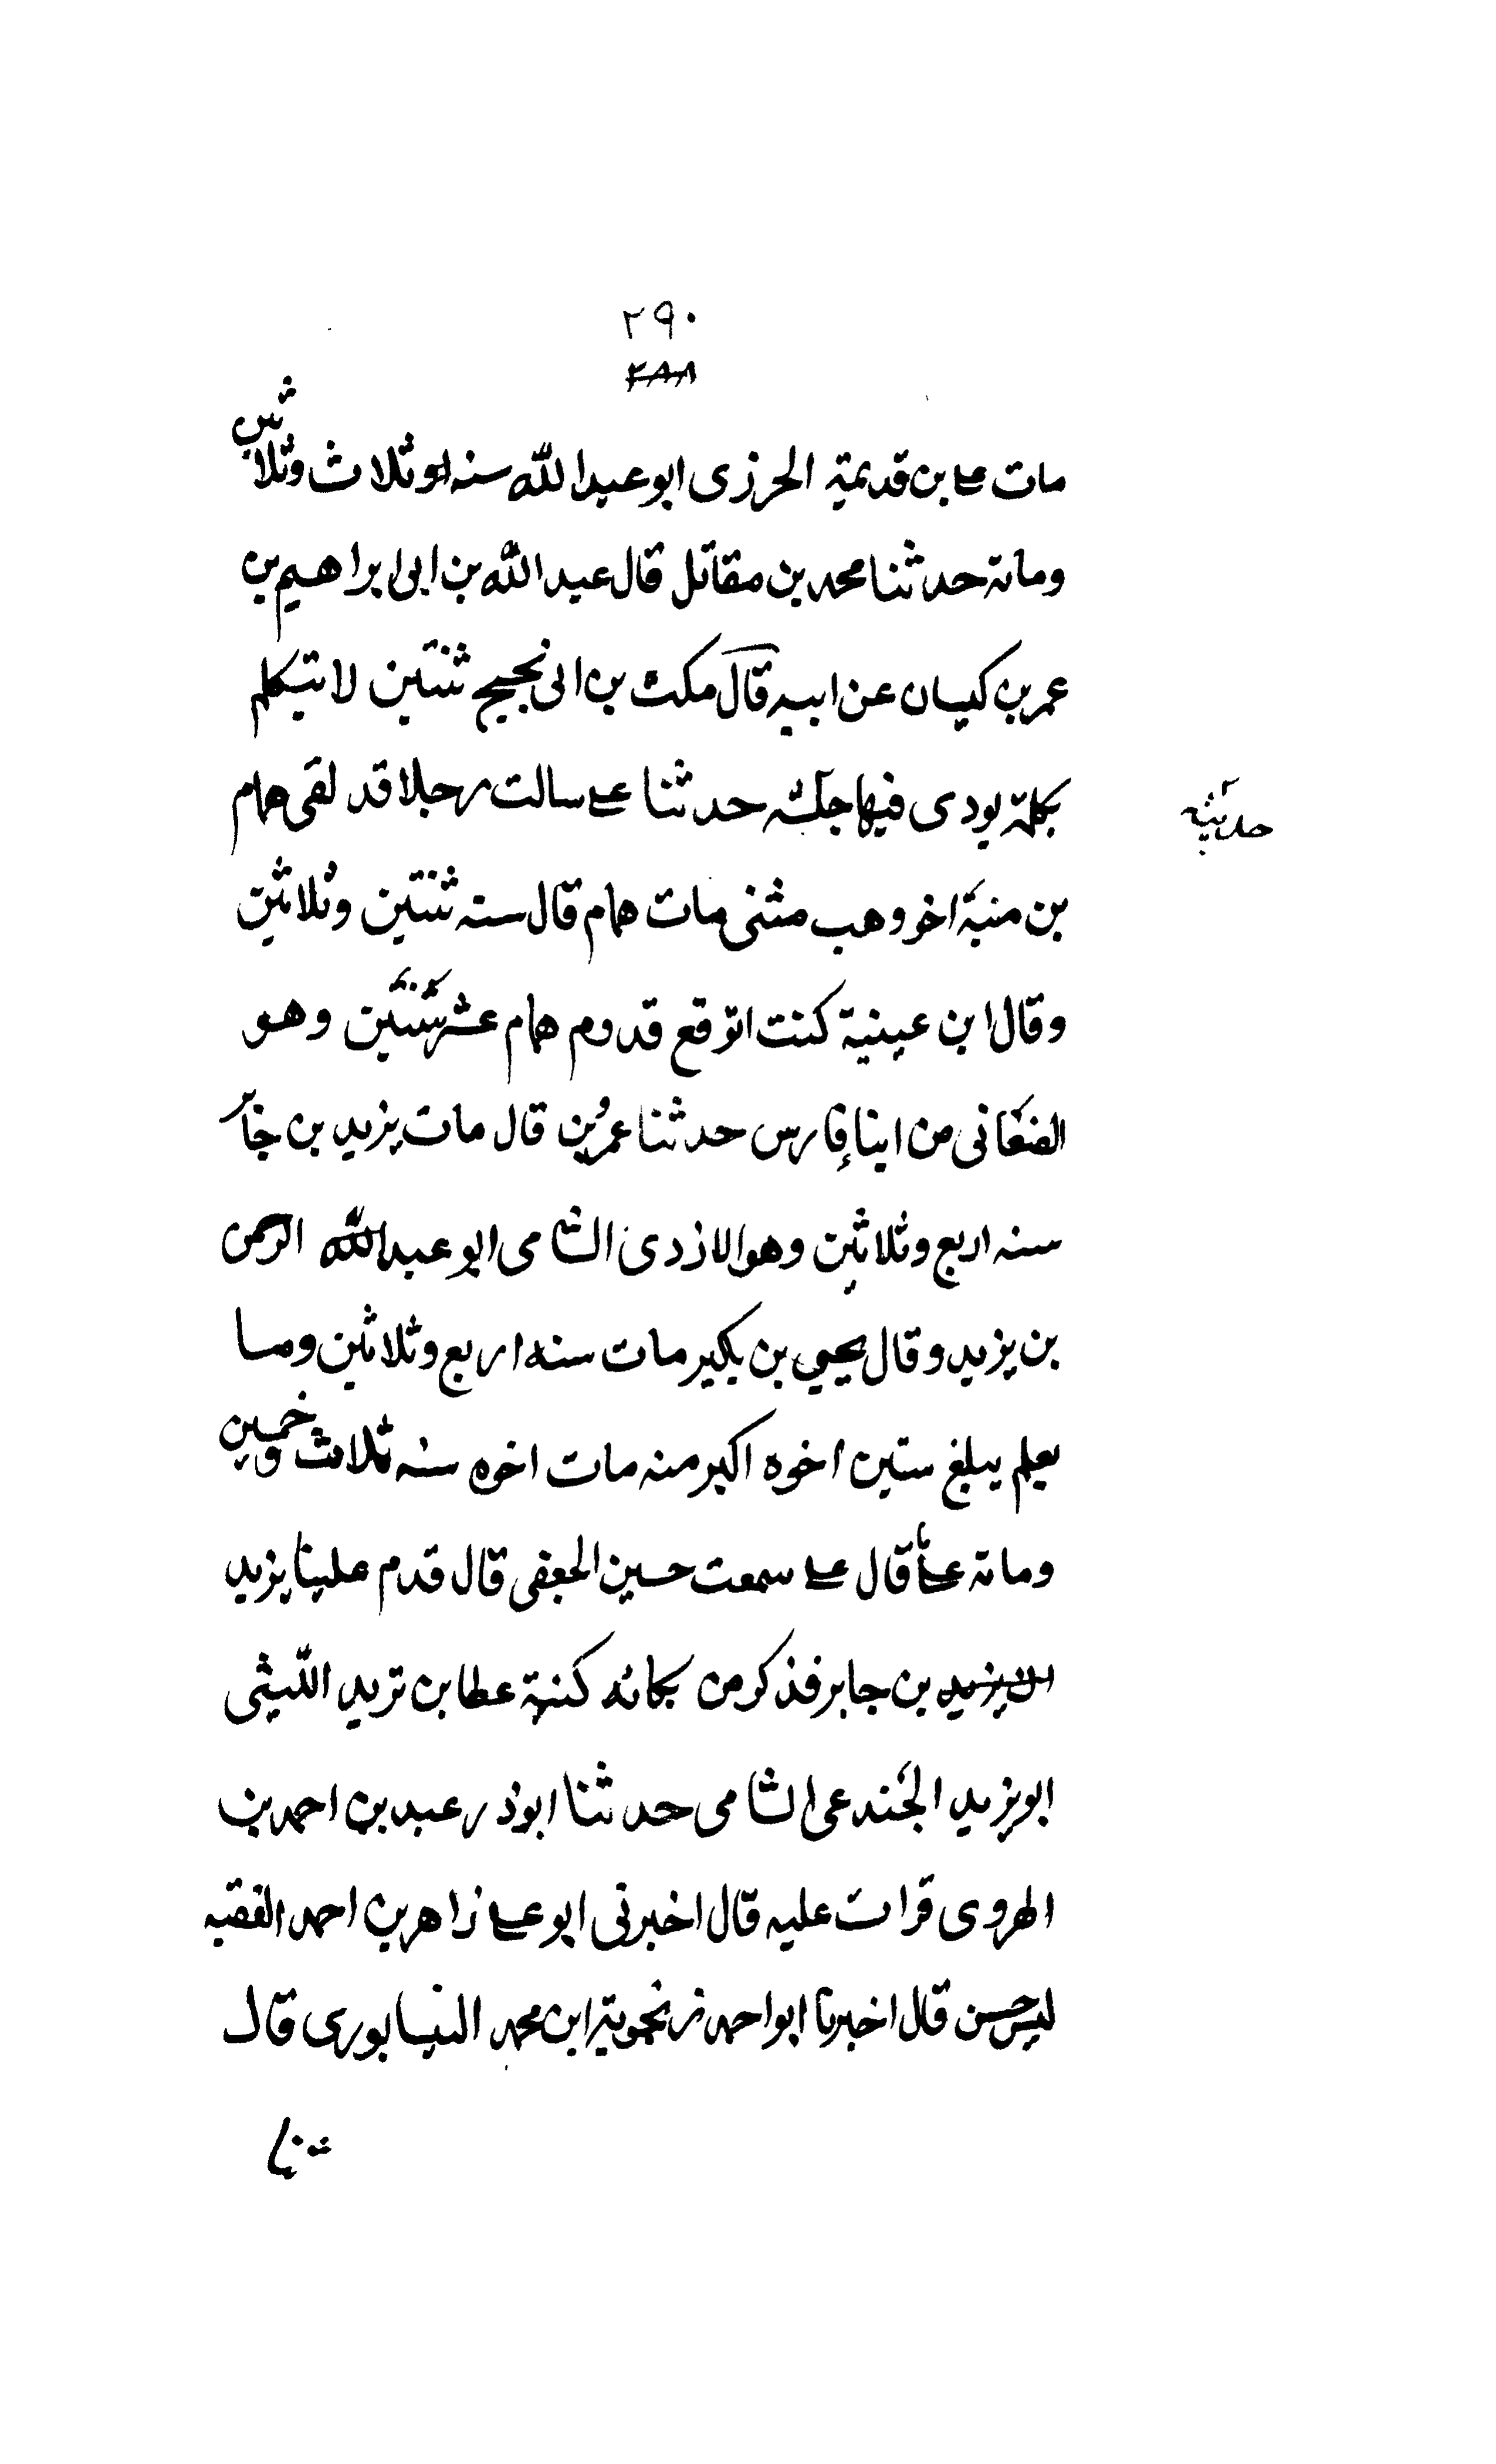 ٢٩٠
٢٨٨
مات على بن قديمة الحرزى ابو عبدالله سنه او ثلاث وثلاثين
ومائة حدثنا محمد بن مقاتل قال عبد الله بن ابى ابراهيم بن
عمر بن كيسان عن ابيه قال مكث بن ابى نجيح ثنتين لا يتكلم
بكلمة يودى فيها جليسه حدثنا على سالت رجلا قد لقى همام
حديثه
بن منبه اخو وهب مثنى مات همام قال سنه ثنتين وثلاثين
وقال ابن عيينة كنت اتوقع قدوم همام عشر سنين وهو
الصنعانى من ابنا فارس حدثنا عمر بن قال مات يزيد بن جابر
سنه اربع وثلاثين وهو الازدى الشامى ابو عبدالله الرحمن
بن يزيد وقال يحيي بن بكير مات سنه اربع وثلاثين وما
يعلم يبلغ ستين اخوه اكبر منه مات اخوه سنه ثلاث وخمسين
ومائة قال على سمعت حسين الجعفى قال قدم علينا يزيد
بن يزيد بن جابر فذكر من بكائه كنية عطا بن يزيد الليثى
ابو يزيد الجندعى الشامى حدثنا ابوذر عبد بن احمد بن
الهروى قرات عليه قال اخبرنى ابو على زاهر بن احمد الفقيه
ليسرحسن قال اخبرنا ابو احمد زنجوية ابن محمد النيسابورى قال
ثنا